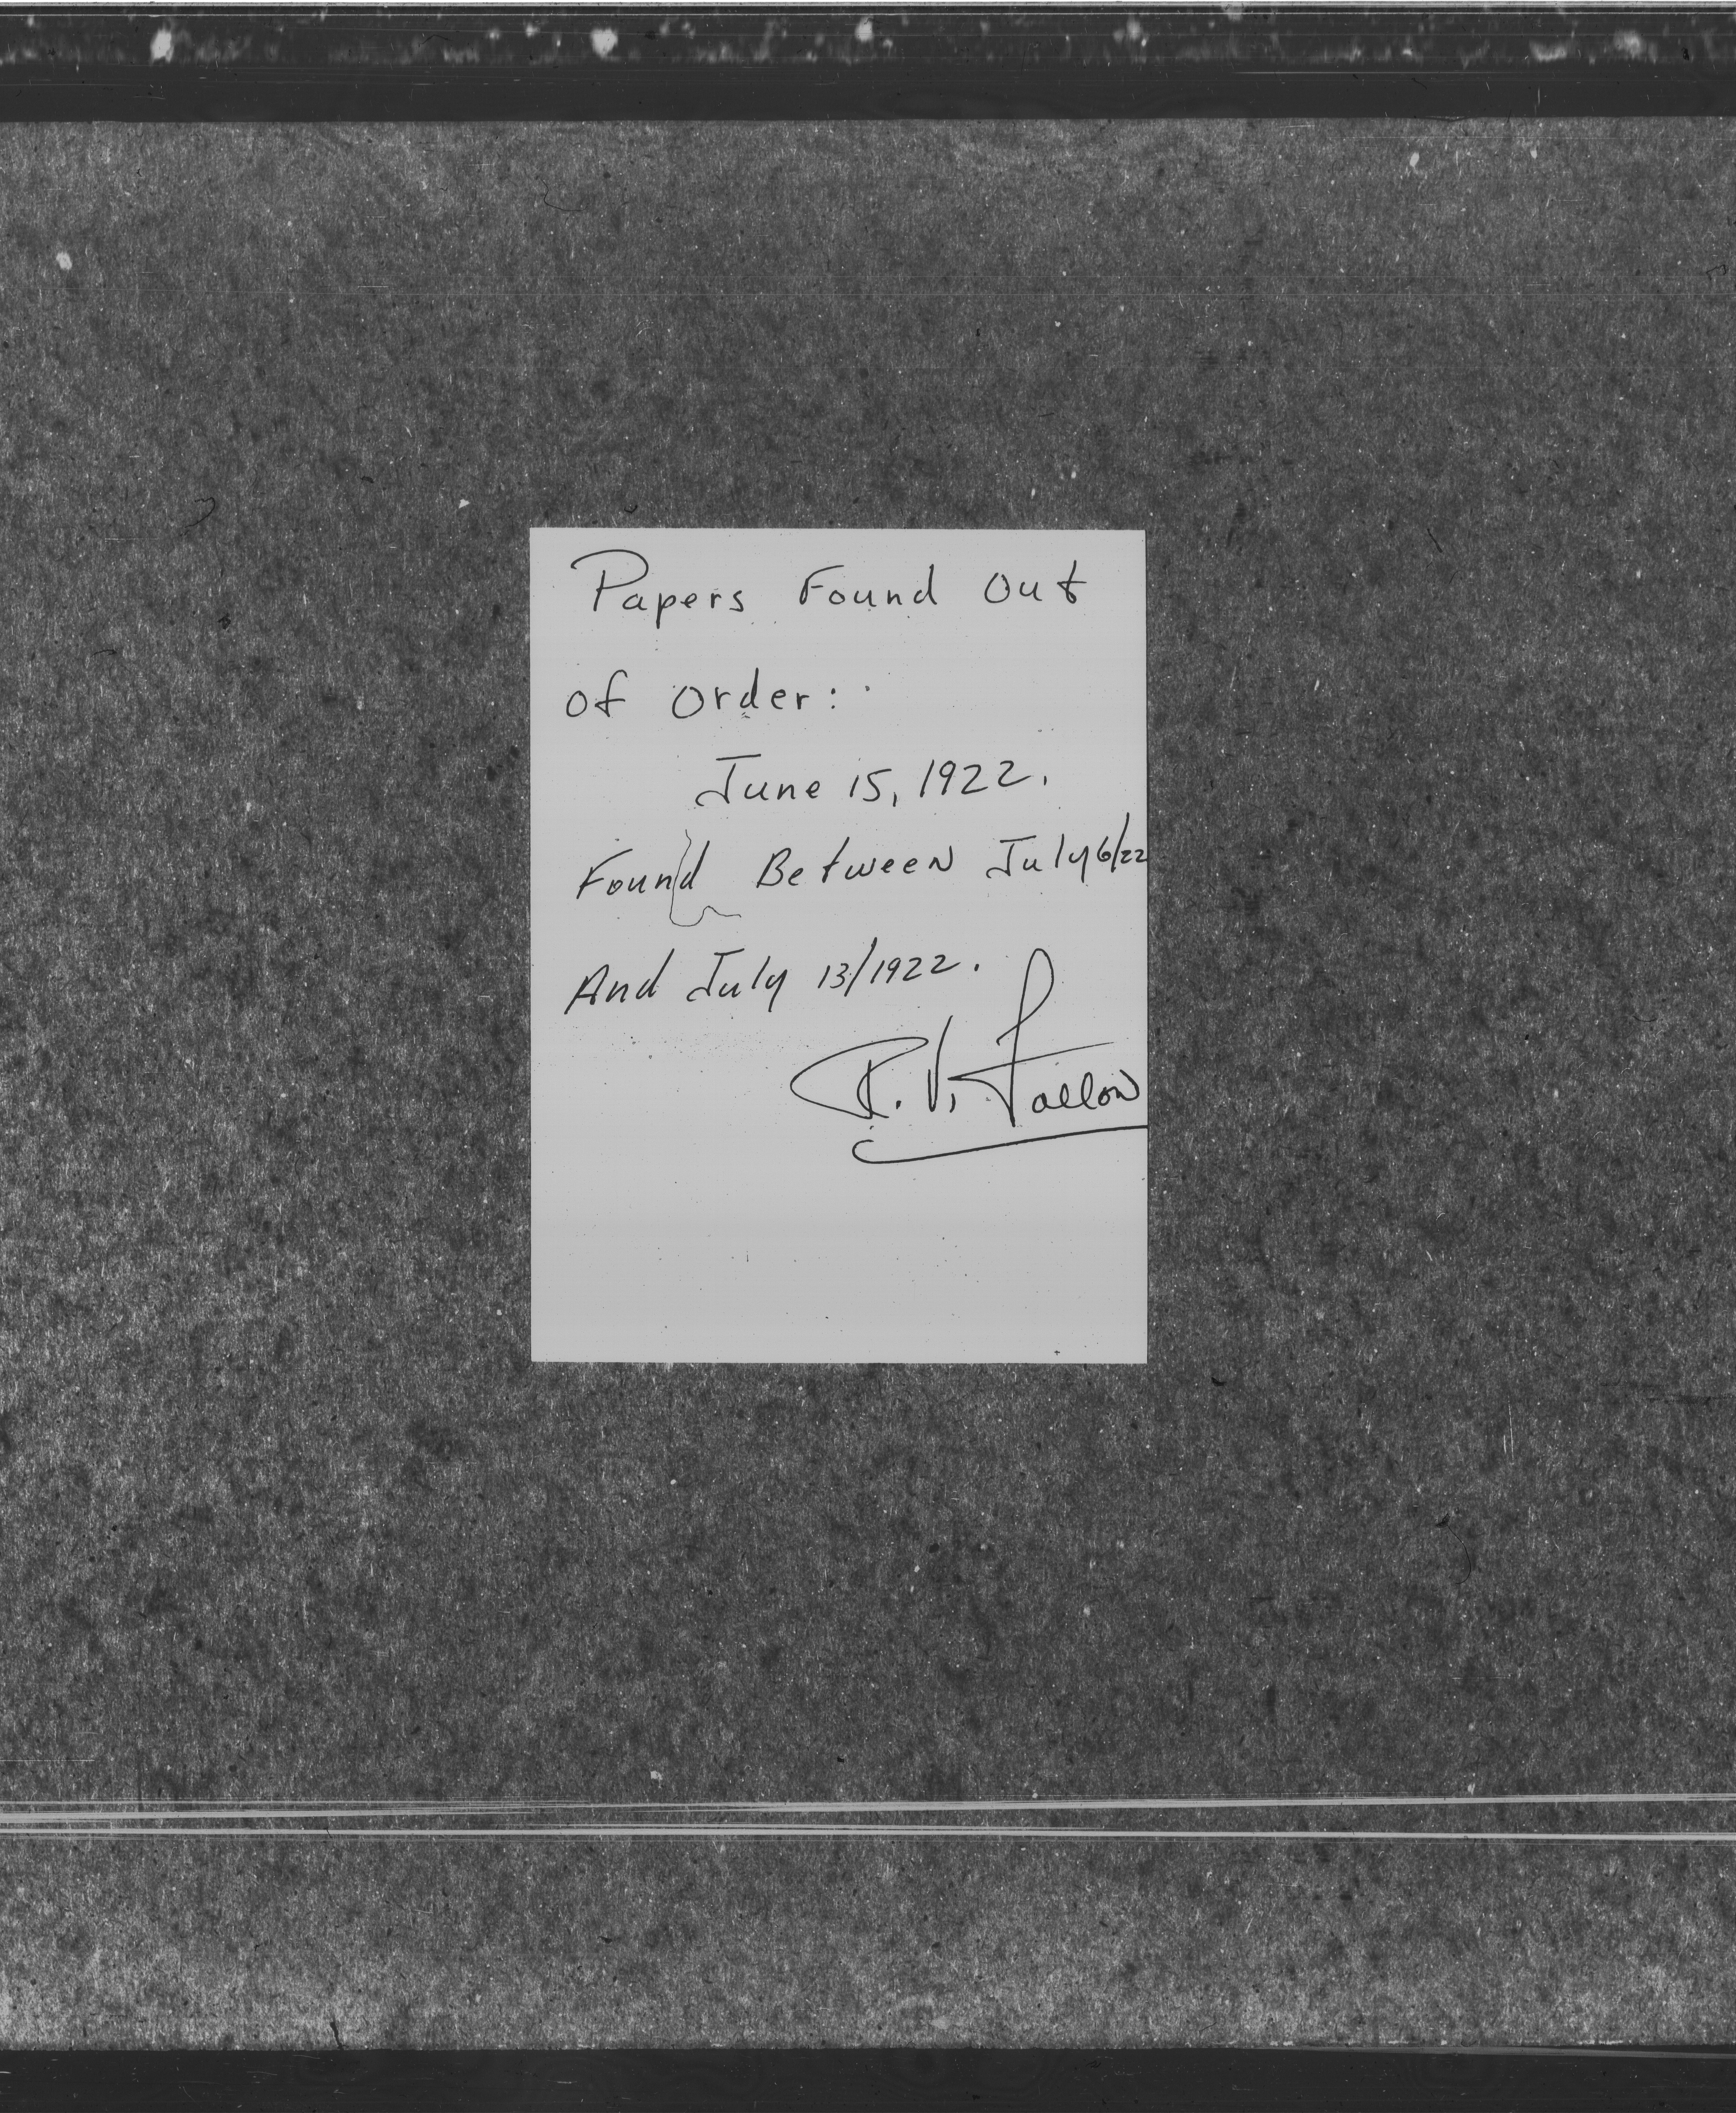 Papers Found Out
of Order:
June 15, 1922.
Found Between July 6/22
And July 13/1922.
R. V. Fallon